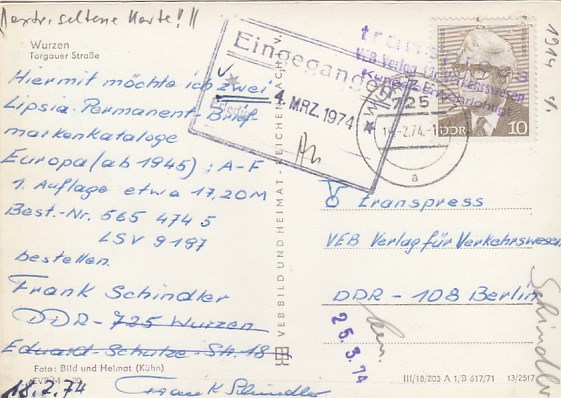 seltene Karte!!
Wurzen
Torgauer Straße
Hiermit möchte ich zwei
Lipsia Permanent-Brief
markenkataloge
Europa (ab 1945) : A-F
1. Auflage etwa 17,20M
Best.-Nr. 565 474 5
LSV 9197
bestellen.
Frank Schindler
DDR - 725 Wurzen
Eduard-Schulze-Str. 18
Foto: Bild und Heimat (Kühn)
18.2.74
Frank Schindler
VEB BILD UND HEIMAT · REICHENBACH
Eingegangen
4. MRZ. 1974
transpress
VEB Verlag für Verkehrswesen
725
-2.74.-1
a
DDR
10
1914
transpress
VEB Verlag für Verkehrswesen
DDR - 108 Berlin
Schindler
25.3.74
III/18/203 A 1/B 617/71
13/2517